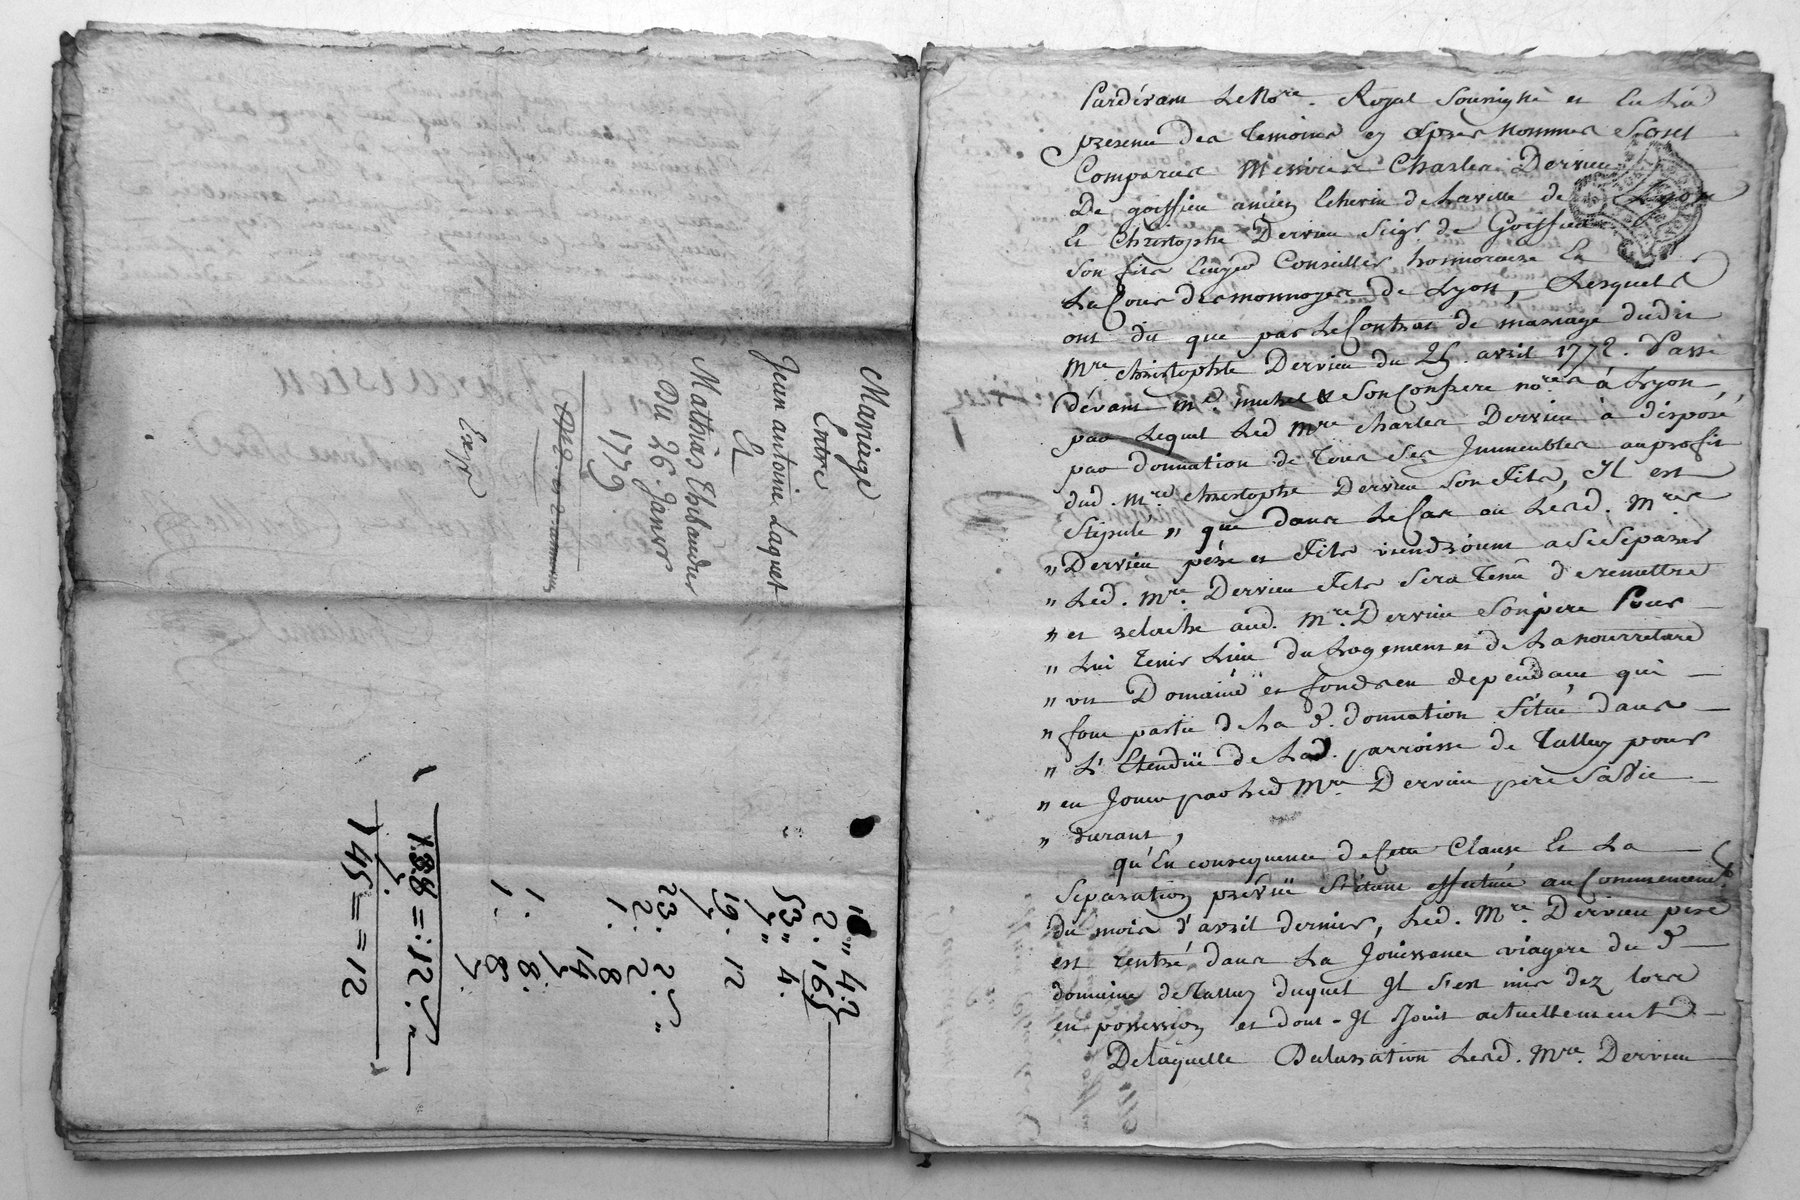 Mariage
Entre
Jean antoine Laquet
Et
Mathias Thibaudier
Du 26. Janvr
1779
Expé
" 4.2
2. 16
53 " 4.
19. 12
23. 2.
1. 14
1. 8
188 = 12
145 = = 12
Pardevant Le Nore. Royal Soussigné et En La
presence des Temoins cy apres nommés Sont
Comparus Messires Charles Dervieu
De goiffieu ancien Echevin de La ville de Lyon
Et Christophe Dervieu Seigr de Goiffieu
Son fils Ecuyer Conseiller honnoraire En
La Cour des monnoyes de Lyon, Lesquels
ont dit que par Le Contrat de mariage dudit
Mre. christophe Dervieu du 25 avril 1772. Passé
dévant me. Son Confrere nores à Lyon
par Lequel Led Mre Charles Dervieu à disposé
par donnation de Tous Ses Immeubles au profit
dud. Mre christophe Dervieu Son Fils, Il est
Stipulé " que dans Le Cas ou Lesd. Mres
" Dervieu pére et Fils viendroient a Se Separer
" Led. Mre. Dervieu Fils Sera Tenû de remettre
" et relache aud. Mre. Dervieu Son pere Pour
" Lui Tenir Lieu du Logement et de La nourriture
" un Domaine et fonds en dependant qui
" font partie de La d. donnation Situé dans
" L'Etenduë de Lad. parroisse de Talluy pour
" en Jouir par Led Mre Dervieu pere Sa Vie
" durant,
qu'En consequence de Cette Clause Et La
Separation prévuë S'étant effectuée au Commencement
du mois d'avril dernier, Led. Mre. Dervieu pere
est rentré dans La Jouissance viagere du d.
domaine de Talluy duquel Il S'est mis dez lors
en possession et dont Il Jouit actuellement
De laquelle Declaration Lesd. Mre. Dervieu